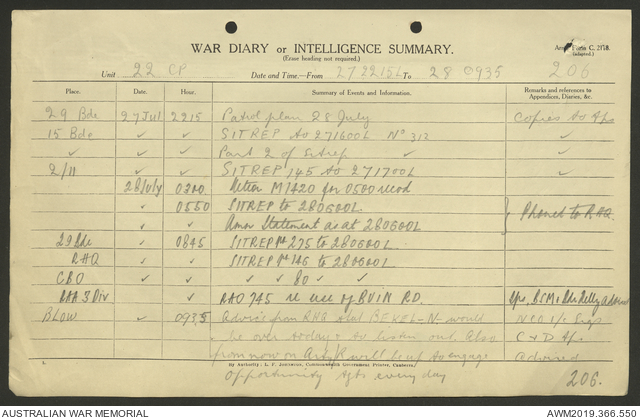 WAR DIARY or INTELLIGENCE SUMMARY.
(Erase heading not required.)
Army Form C. 2118.
(adapted.)
Unit 22 CP Date and Time—From 272215L To 28 0935 206
Place. Date. Hour. Summary of Events and Information. Remarks and references to Appendices, Diaries, &c.
29 Bde 27 Jul 2215 Patrol plan 28 July Copies to
15 Bde ✓ ✓ SITREP to 271600L No 313 ✓
✓ ✓ ✓ Part 2 of sitrep ✓ ✓
2/11 ✓ ✓ SITREP 145 to 271700L ✓
28 July 0300 Meteor M1420 for 0500
✓ 0550 SITREP to 280600L
✓ Ammo Statement as at 280600L } Phoned to RHQ
29 Bde ✓ 0845 SITREP No 275 to 280600L
RHQ ✓ SITREP No 146 to 280600L
CBO ✓ ✓ ✓ ✓ 80 ✓ ✓
RAA 3 Div RAO 745 re use of BUIN RD.
BLOW ✓ 0935 Advice from RHQ that BEKEL-N- would
be over today to. Also C & D
from now on Arty/R will be up to engage advised
By Authority: L. F. Johnston, Commonwealth Government Printer, Canberra.
opportunity tgts every day 206.
AUSTRALIAN WAR MEMORIAL AWM2019.366.550